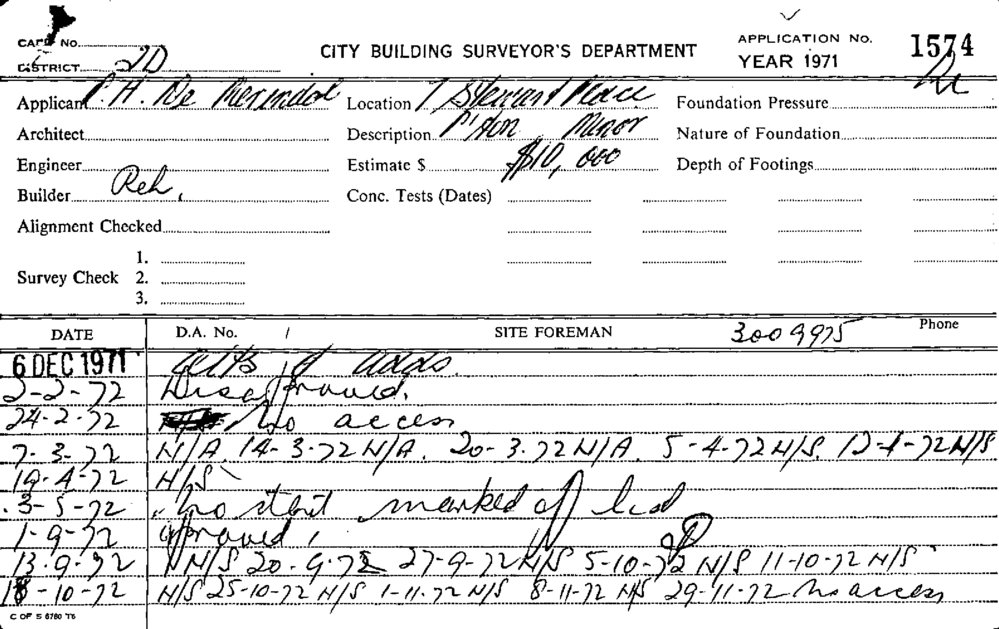 CARD No.
DISTRICT 2D
CITY BUILDING SURVEYOR'S DEPARTMENT
APPLICATION No. 1574
YEAR 1971
Applicant P. H. De
Location 7 Steward Place
Foundation Pressure
Architect
Description P'ston, Minor
Nature of Foundation
Engineer
Estimate $ $10,000
Depth of Footings
Builder Reh,
Conc. Tests (Dates)
Alignment Checked
Survey Check
1.
2.
3.
DATE D.A. No. / SITE FOREMAN 3009975 Phone
6 DEC 1971 Alts & adds.
2-2-72 Disapproved.
24-2-72 No access
7-3-72 N/A. 14-3-72 N/A. 20-3-72 N/A 5-4-72 N/S. 12-4-72 N/S
19-4-72 N/S
3-5-72 No start marked off
1-9-72 approved,
13-9-72 N/S 20-9-72 27-9-72 N/S 5-10-72 N/S 11-10-72 N/S
18-10-72 N/S 25-10-72 N/S 1-11-72 N/S 8-11-72 N/S 29-11-72 No access
C OF S 6780 T6